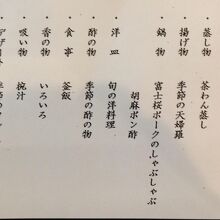 ・蒸し物　茶わん蒸し
・揚げ物　季節の天婦羅
・鍋物　富士桜ポークのしゃぶしゃぶ
胡麻ポン酢
・洋皿　旬の洋料理
・酢の物　季節の酢の物
・食事　釜飯
・香の物　いろいろ
・吸い物　椀汁